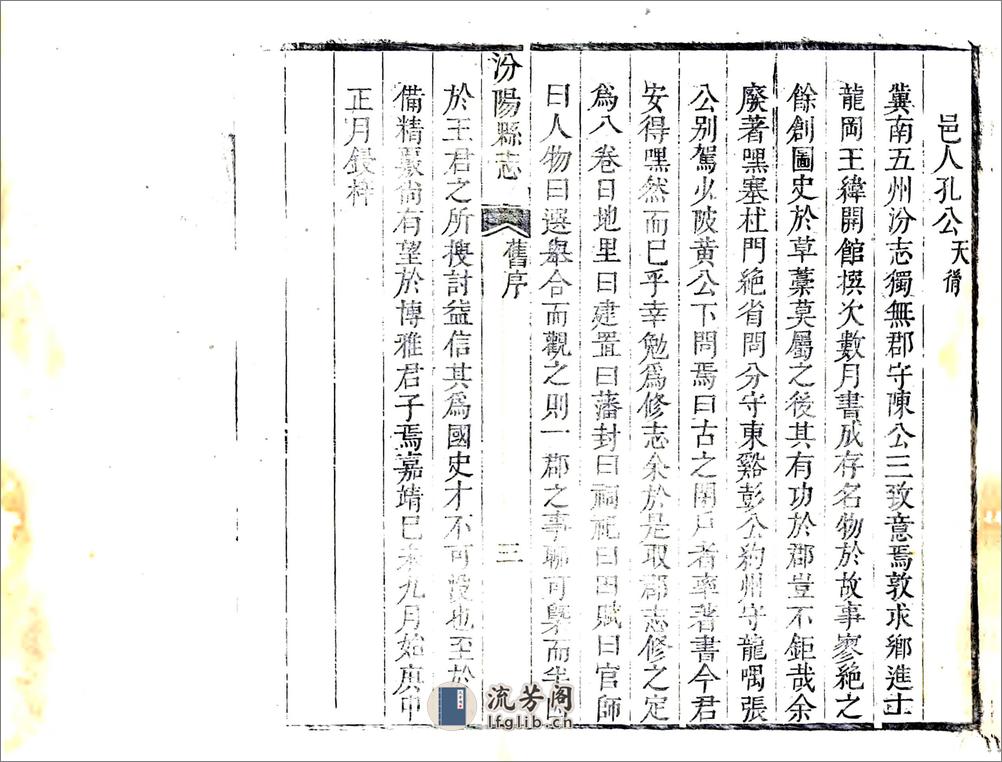 邑人孔公天胤
冀南五州汾志獨無郡守陳公三致意焉敦求鄉進士
龍岡王緯開館撰次數月書成存名物於故事寥絶之
餘創圖史於草藁莫屬之後其有功於郡豈不鉅哉余
廢著嘿塞杜門絶省問分守東谿彭公約州守龍喁張
公別駕火陂黄公下問焉曰古之閉戶者率著書今君
安得嘿然而已乎幸勉爲修志余於是取郡志修之定
爲八卷曰地里曰建置曰藩封曰祠祀曰田賦曰官師
曰人物曰選舉合而觀之則一郡之事聊可槩而
汾陽縣志
舊序
三
於王君之所搜討益信其爲國史才不可没也至於
備精覈尚有望於博雅君子焉嘉靖已未九月始庚申
正月鋟梓
流芳阁
lfglib.cn